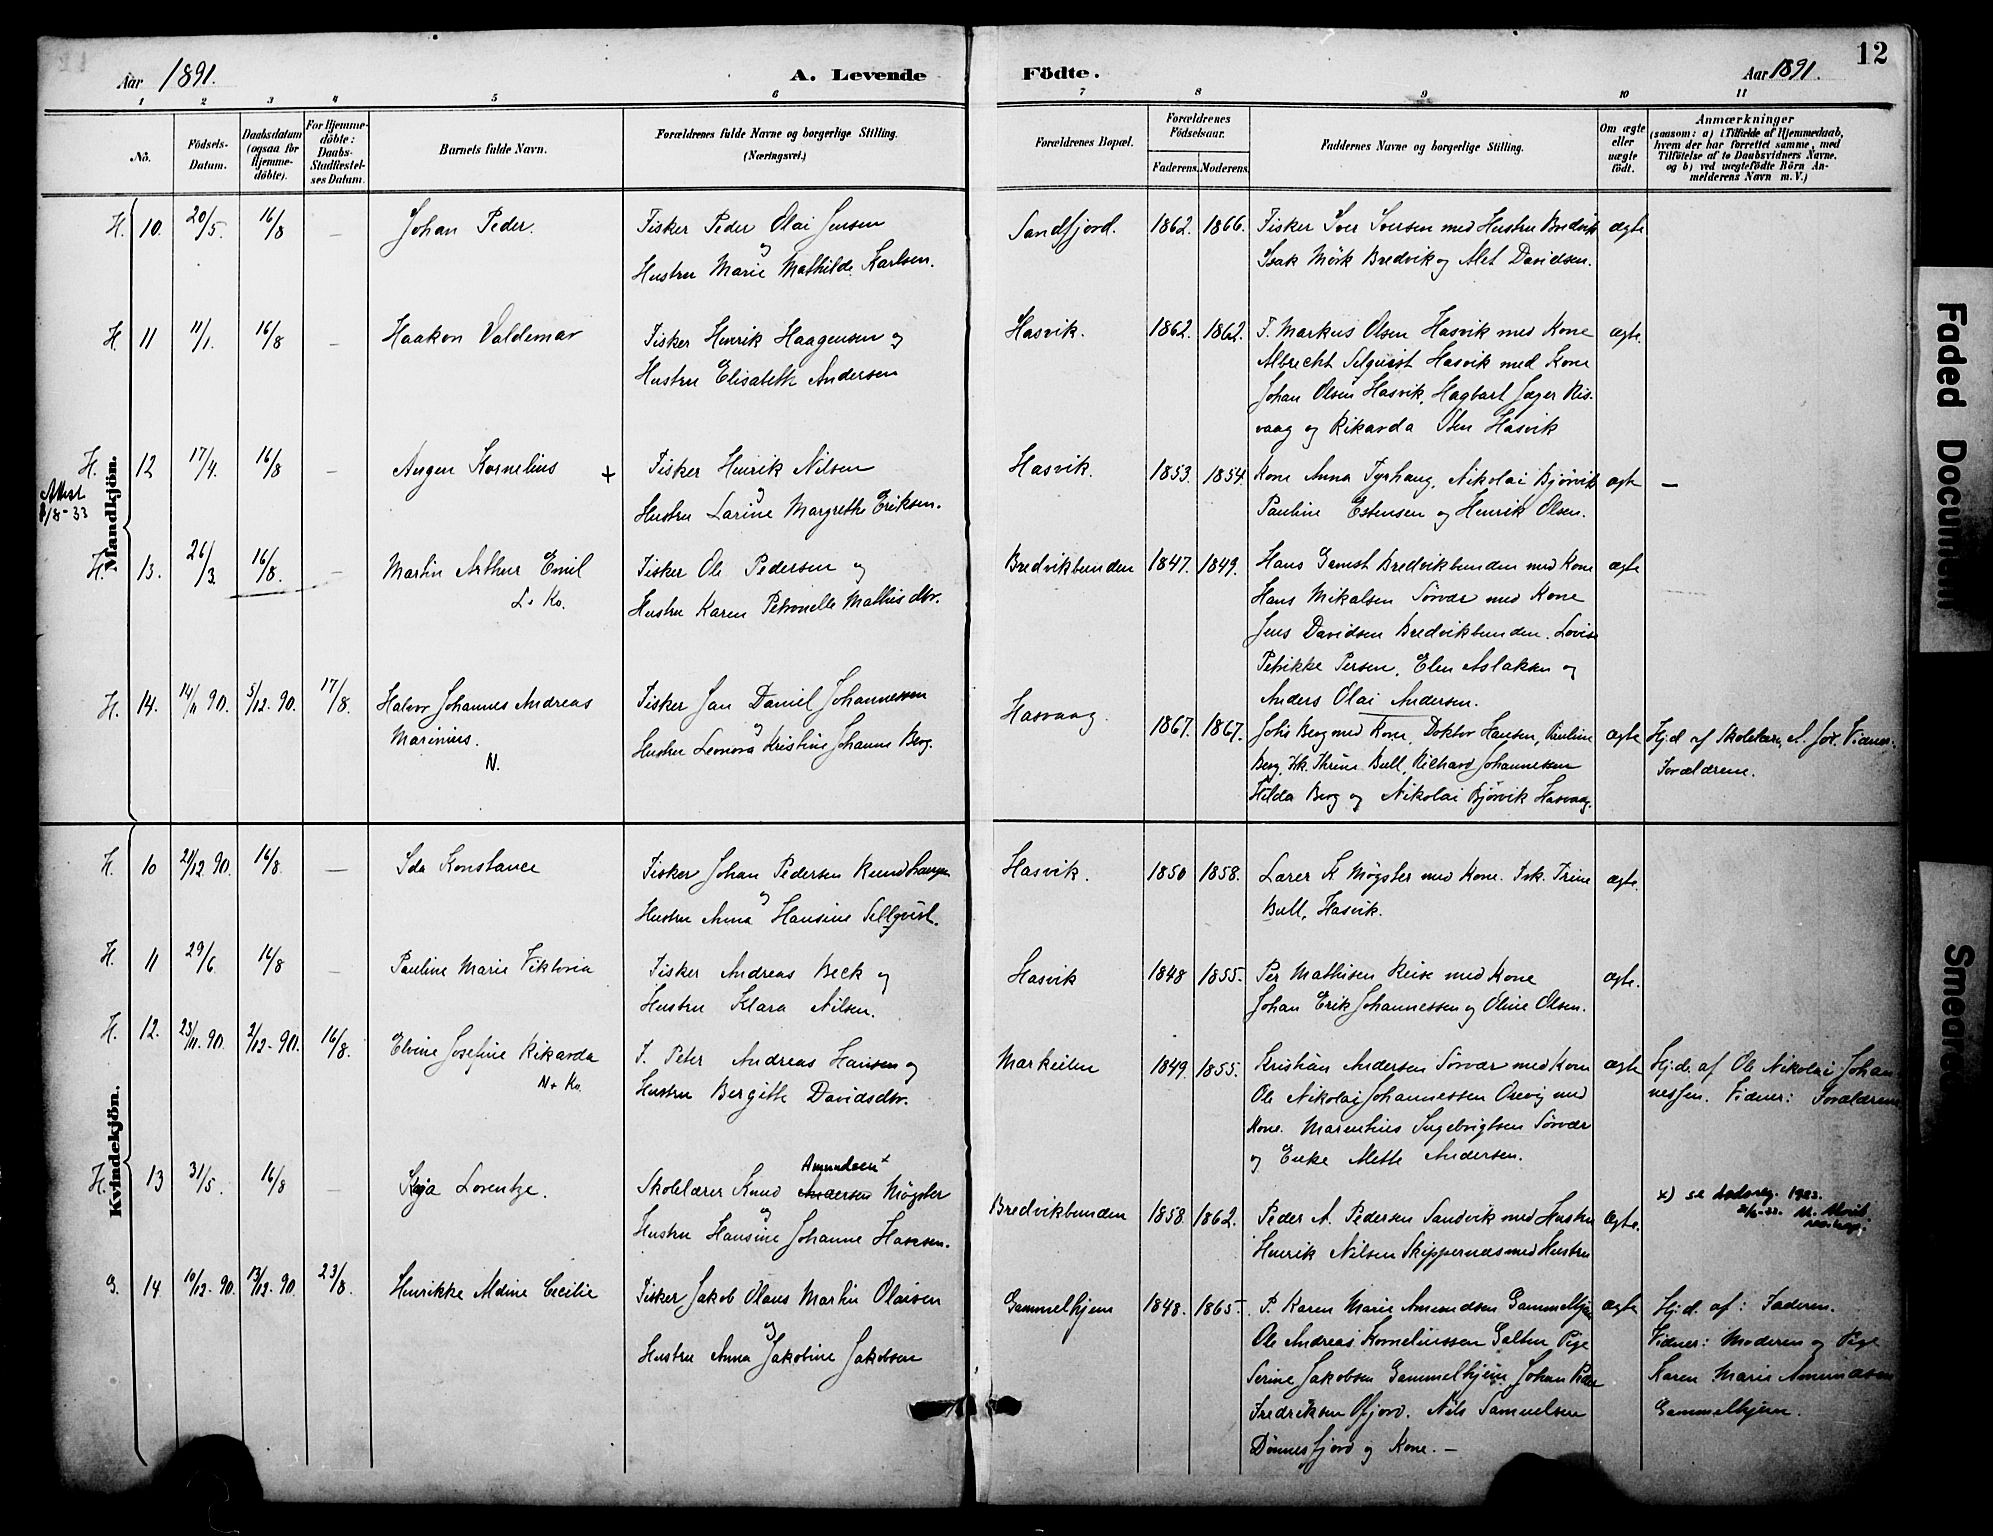 12
Aar 1891. A. Levende Födte. Aar 1891.
1 2 3 4 5 6 7 8 9 10 11
No. Födsels-Datum. Daabsdatum (ogsaa for Hjemme-döbte). For Hjemme-döbte: Daabs-Stadfæstel-ses Datum. Barnets fulde Navn. Forældrenes fulde Navne og borgerlige Stilling. (Næringsvei.) Forældrenes Bopæl. Forældrenes Födselsaar. Faderens. Moderens. Faddernes Navne og borgerlige Stilling. Om ægte eller uægte födt. Anmærkninger (saasom: a) i Tilfælde af Hjemmedaab, hvem der har forrettet samme, med Tilföielse af to Daabsvidners Navne, og b) ved uægtefödte Börn An-melderens Navn m. V.)
Mandkjön.
H. 10. 20/5. 16/8 — Johan Peder. Fisker Peder Olai Jensen Sandfjord. 1862. 1866. Fisker Iver Iversen med Hustru Bredvik ægte
og
Hustru Marie Mathilde Karlsen. Isak Mörk Bredvik og Alet Davidsen.
H. 11 11/1. 16/8 — Haakon Valdemar Fisker Henrik Haagensen og Hasvik. 1862. 1862. F. Markus Olsen Hasvik med Kone ægte.
Hustru Elisabeth Andersen Albrecht Selqvist Hasvik med Kone
Johan Olsen Hasvik, Hagbart Jæger Ris-
vaag og Rikarda Hasvik
H. 12 17/4. 16/8 — Angen Kornelius + Fisker Henrik Nilsen Hasvik. 1853. 1854. Kone Anna Fyrhaug, Nikolai Bjørvik ægte —
Attest
1/8-33
og
Hustru Larine Margrethe Eriksen. Pauline Estensen og Henrik Olsen.
H. 13. 26/3. 16/8. — Martin Arthur Emil Fisker Ole Pedersen og Bredvikbunden 1847. 1849. Hans Bredvikbunden med Kone ægte
L. Ko. Hustru Karen Petronelle Mathisdtr. Hans Mikalsen Sørvær med Kone
Jens Davidsen Bredvikbunden. Lovise
Petrikke Persen, Elen Aslaksen og
Anders Olai Andersen.
H. 14. 14/11 90. 5/12. 90. 17/8. Halvor Johannes Andreas Fisker Jan Daniel Johannessen Hasvaag. 1867. 1867. Johs Berg med Kone, Doktor Hansen, Pauline ægte Hjd. af Skolelærer A. Vidner:
Marinius. og
N. Hustru Leonora Kristine Johanne Berg. Berg, Frk. Thrine Bull, Richard Johannessen Forældrene.
Hilda Berg og Nikolai Bjørvik Hasvaag.
Kvindekjön.
H. 10 21/12 90. 16/8. — Ida Konstance Fisker Johan Pedersen Hasvik. 1850 1858. Lærer K Møgster med Kone. Frk. Trine ægte.
og
Hustru Anna Hansine Sellqvist. Bull, Hasvik.
H. 11 29/6 16/8 — Pauline Marie Viktoria Fisker Andreas Beck og Hasvik 1848 1855. Per Mathisen med Kone ægte.
Hustru Klara Nilsen. Johan Erik Johannessen og Oline Olsen.
H. 12. 23/11. 90. 2/12. 90. 16/8. Elvine Josefine Rikarda F. Peter Andreas Hansen og Markeilen 1849. 1855. Kristian Andersen Sørvær med Kone ægte Hjd. af Ole Nikolai Johan-
N. Ko. Hustru Bergitte Davidsdtr. Ole Nikolai Johannessen med nessen. Vidner: Forældrene
Kone. Marenthius Ingebrigtsen Sørvær
og Enke Mette Andersen.
Amundsen x
H. 13 31/5. 16/8 — Kaja Lorentze. Skolelærer Knud Andersen Møgster Bredvikbunden 1858. 1862. Peder A. Pedersen Sandvik med Hustru ægte. x) se dødsreg. 1923.
og
Hustru Hansine Johanne Hansen. Henrik Nilsen Skippernæs med Hustru
G. 14. 10/12. 90. 13/12. 90. 23/8. Henrikke Aldine Cecilie Fisker Jakob Olaus Martin Olaisen Gammelhjem 1848. 1865. P. Karen Marie Amundsen Gammelhjem ægte Hjd. af: Faderen.
og
Hustru Anna Jakobine Jakobsen Ole Andreas Korneliussen Galten, Pige Vidner: Moderen og Pige
Serine Jakobsen Gammelhjem, Johan Peder Karen Marie Amundsen
Fredriksen Ofjord. Nils Samuelsen Gammelhjem.
Dønnesfjord og Kone. —
Faded Document
Smeared